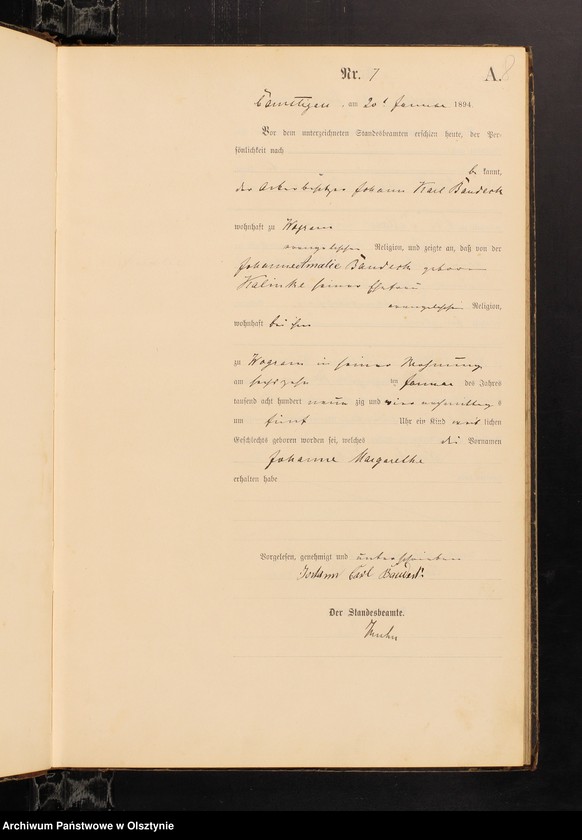 Nr. 7 A.
am 20t Januar 1894.
Vor dem unterzeichneten Standesbeamten erschien heute, der Per-
sönlichkeit nach
be kannt,
Johann Karl Bandeck
wohnhaft zu Wogram
evangelischer Religion, und zeigte an, daß von der
Johanne Amalie Bandeck geborene
Kalinke seiner Ehefrau
evangelischer Religion,
wohnhaft bei ihm
zu Wogram in seiner Wohnung
am sechszehn ten Januar des Jahres
tausend acht hundert neun zig und vier nachmittags
um fünf Uhr ein Kind weib lichen
Geschlechts geboren worden sei, welches die Vornamen
Johanne Margarethe
erhalten habe
Vorgelesen, genehmigt und unterschrieben
Johann Carl
Der Standesbeamte.
Archiwum Państwowe w Olsztynie